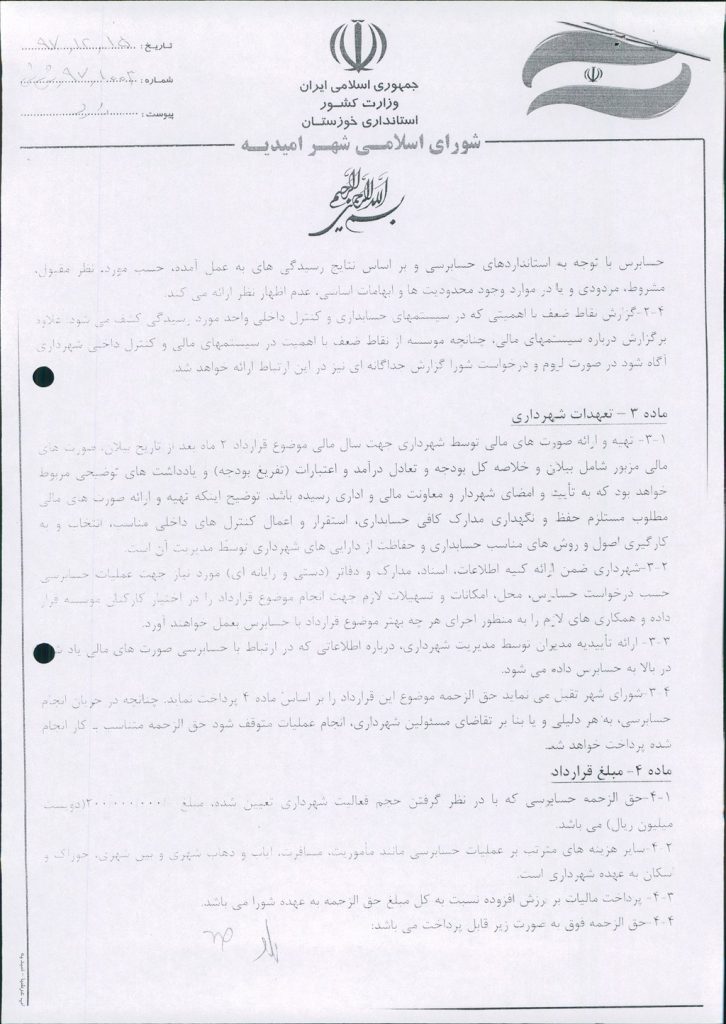 جمهوری اسلامی ایران
وزارت کشور
استانداری خوزستان
شورای اسلامی شهر امیدیه
تاریخ: ۹۷،۱۲،۱۵
شماره: ۹۷،۱۰۰۳
پیوست:
بسم الله الرحمن الرحیم
حسابرس با توجه به استانداردهای حسابرسی و بر اساس نتایج رسیدگی های به عمل آمده، حسب مورد، نظر مقبول،
مشروط، مردودی و یا در موارد وجود محدودیت ها و ابهامات اساسی، عدم اظهار نظر ارائه می کند.
۲-۴-گزارش نقاط ضعف با اهمیتی که در سیستمهای حسابداری و کنترل داخلی واحد مورد رسیدگی کشف می شود: علاوه
برگزارش درباره سیستمهای مالی، چنانچه موسسه از نقاط ضعف با اهمیت در سیستمهای مالی و کنترل داخلی شهرداری
آگاه شود در صورت لزوم و درخواست شورا گزارش جداگانه ای نیز در این ارتباط ارائه خواهد شد.
ماده ۳ – تعهدات شهرداری
۳-۱- تهیه و ارائه صورت های مالی توسط شهرداری جهت سال مالی موضوع قرارداد ۲ ماه بعد از تاریخ بیلان، صورت های
مالی مزبور شامل بیلان و خلاصه کل بودجه و تعادل درآمد و اعتبارات (تفریغ بودجه) و یادداشت های توضیحی مربوط
خواهد بود که به تأیید و امضای شهردار و معاونت مالی و اداری رسیده باشد. توضیح اینکه تهیه و ارائه صورت های مالی
مطلوب مستلزم حفظ و نگهداری مدارک کافی حسابداری، استقرار و اعمال کنترل های داخلی مناسب، انتخاب و به
کارگیری اصول و روش های مناسب حسابداری و حفاظت از دارایی های شهرداری توسط مدیریت آن است.
۳-۲-شهرداری ضمن ارائه کلیه اطلاعات، اسناد، مدارک و دفاتر (دستی و رایانه ای) مورد نیاز جهت عملیات حسابرسی
حسب درخواست حسابرس، محل، امکانات و تسهیلات لازم جهت انجام موضوع قرارداد را در اختیار کارکنان موسسه قرار
داده و همکاری های لازم را به منظور اجرای هر چه بهتر موضوع قرارداد با حسابرس بعمل خواهند آورد.
۳-۳- ارائه تأییدیه مدیران توسط مدیریت شهرداری، درباره اطلاعاتی که در ارتباط با حسابرسی صورت های مالی یاد شده
در بالا به حسابرس داده می شود.
۳-۴-شورای شهر تقبل می نماید حق الزحمه موضوع این قرارداد را بر اساس ماده ۴ پرداخت نماید. چنانچه در جریان انجام
حسابرسی، به هر دلیلی و یا بنا بر تقاضای مسئولین شهرداری، انجام عملیات متوقف شود حق الزحمه متناسب با کار انجام
شده پرداخت خواهد شد.
ماده ۴- مبلغ قرارداد
۴-۱-حق الزحمه حسابرسی که با در نظر گرفتن حجم فعالیت شهرداری تعیین شده، مبلغ ۲۰۰۰۰۰۰۰۰(دویست
میلیون ریال) می باشد.
۴-۲-سایر هزینه های مترتب بر عملیات حسابرسی مانند مأموریت، مسافرت، ایاب و ذهاب شهری و بین شهری، خوراک و
اسکان به عهده شهرداری است.
۴-۳- پرداخت مالیات بر ارزش افزوده نسبت به کل مبلغ حق الزحمه به عهده شورا می باشد.
۴-۴-حق الزحمه فوق به صورت زیر قابل پرداخت می باشد: